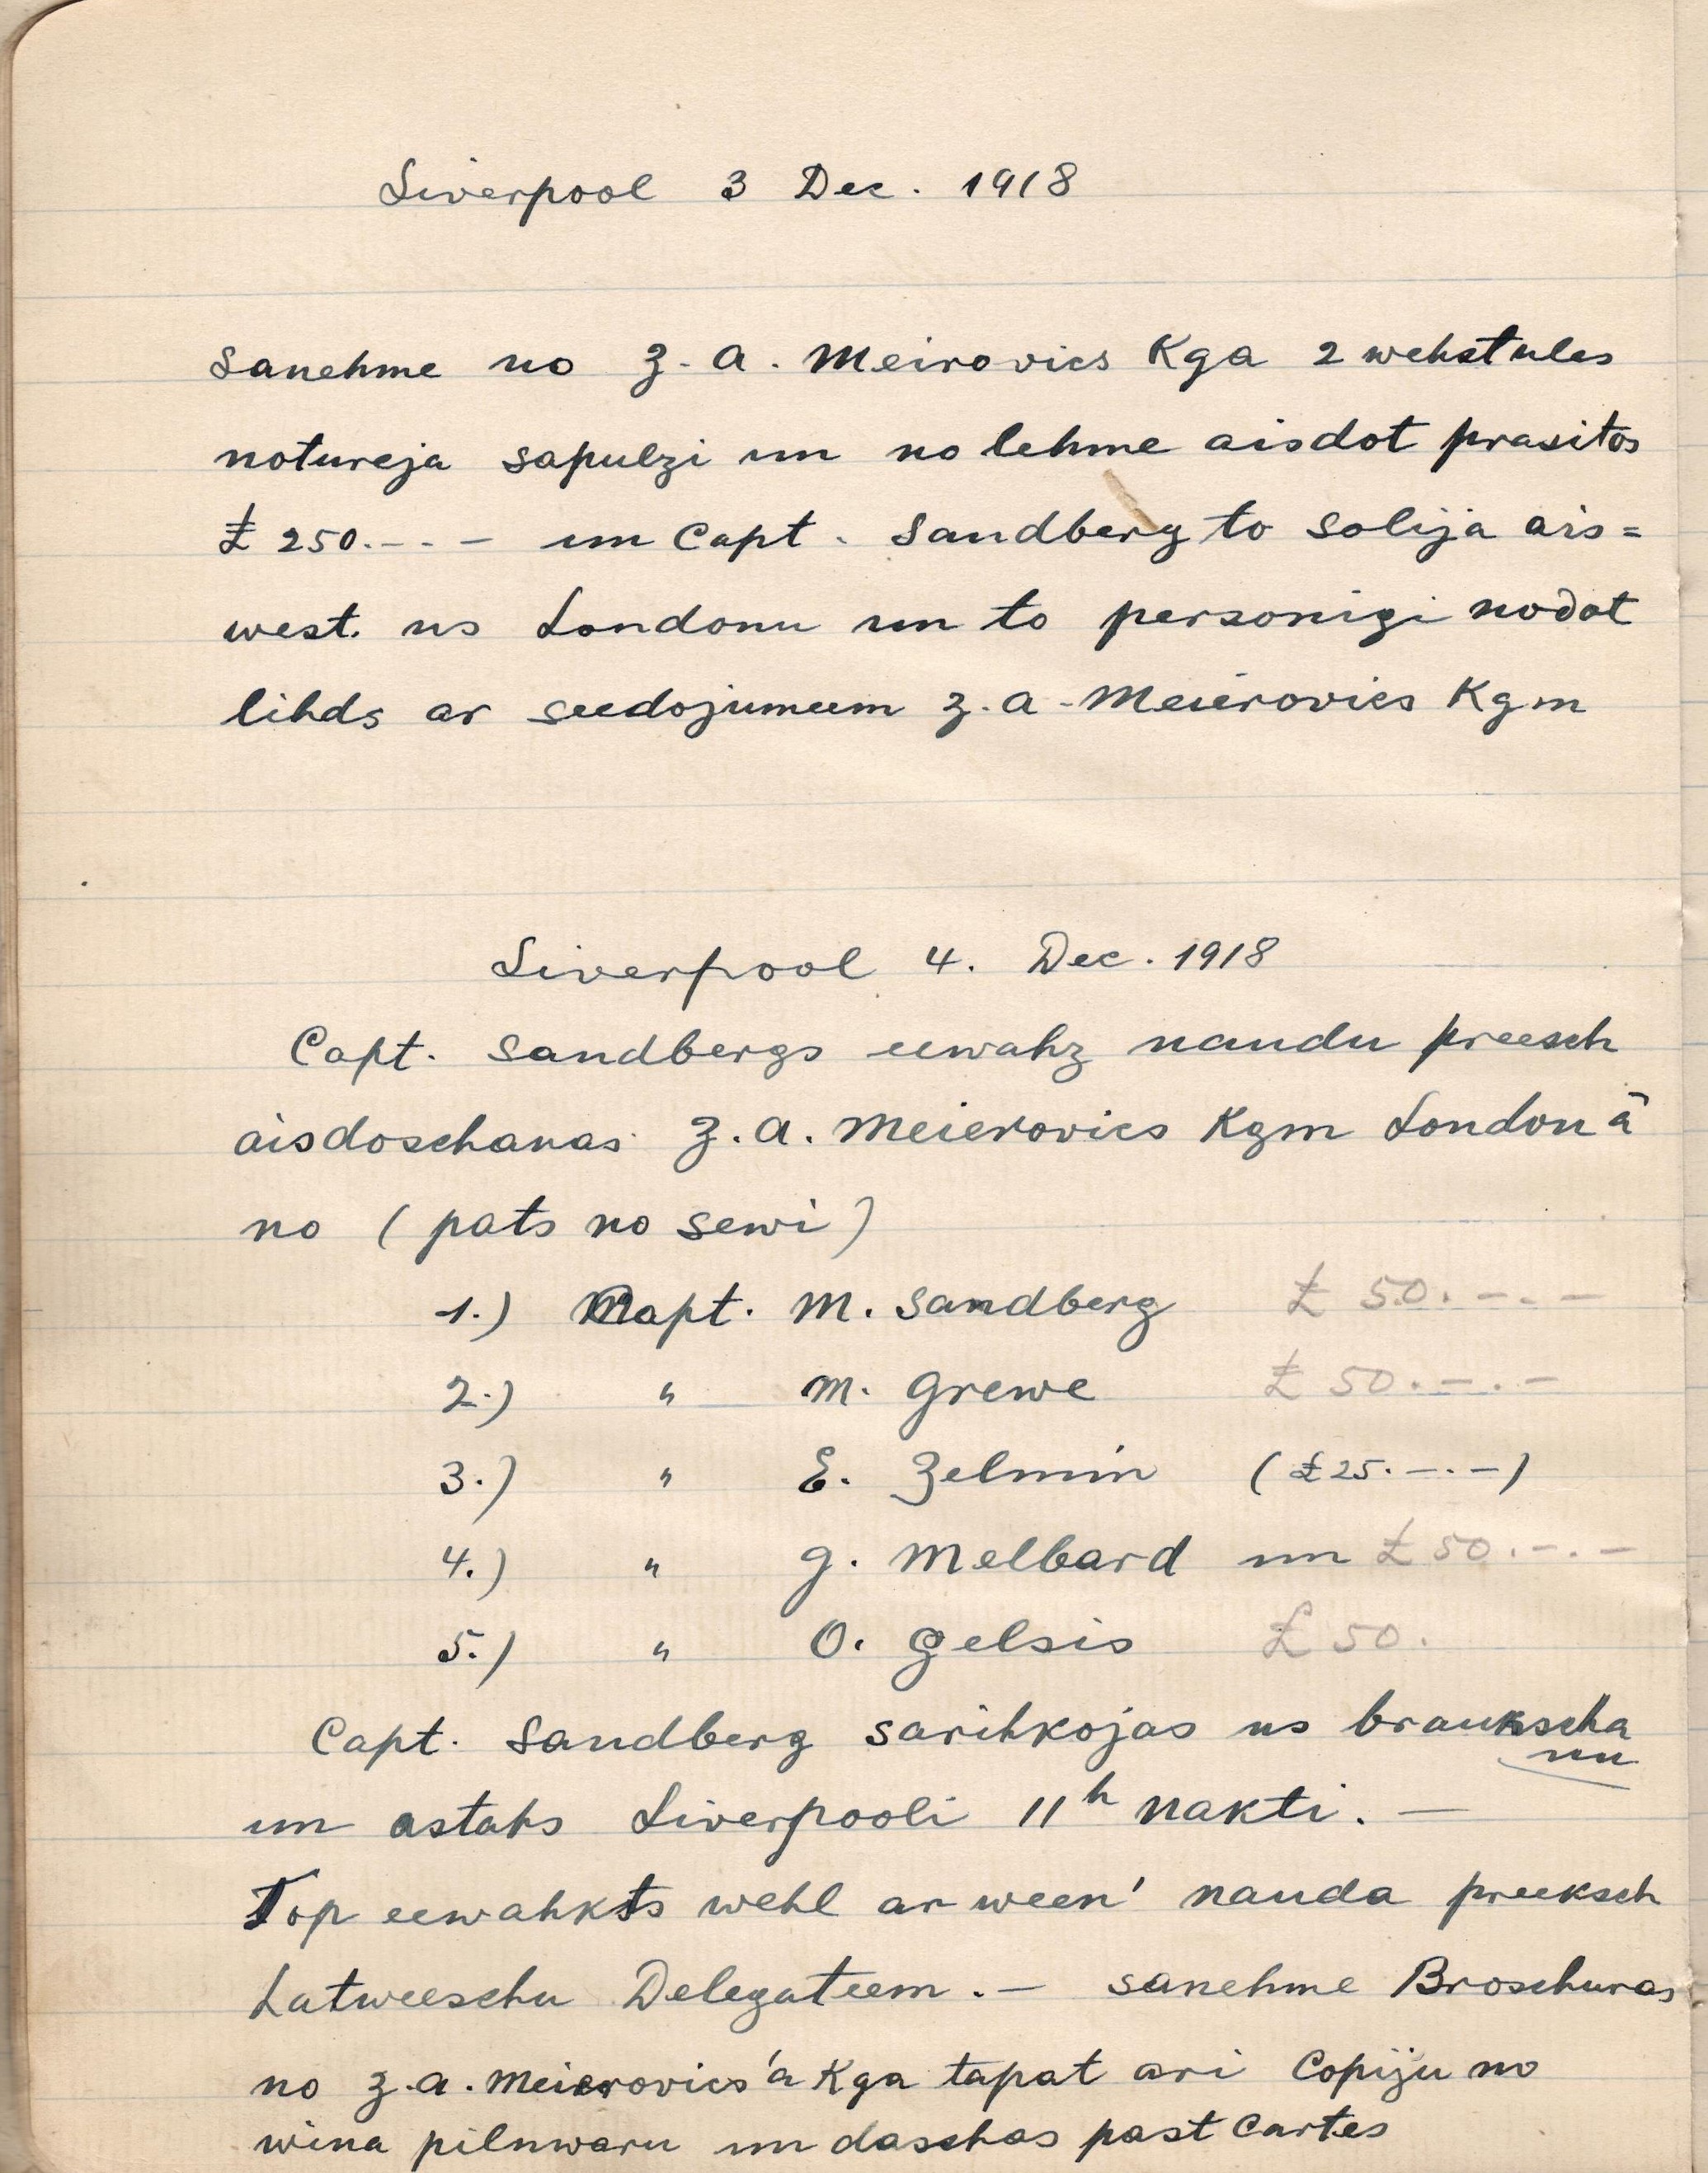 Liverpool 3 Dec. 1918
Sanehme no Z. A. Meirovics Kga 2 wehstules
notureja sapulzi un no lehme aisdot prasitos
£ 250.-.- un Capt. Sandberg to solija ais=
west. us Londonu un to personigi nodot
lihds ar seedojumeem Z. A. Meierovics Kgm
Liverpool 4. Dec. 1918
Capt. Sandbergs eewahz naudu preesch
aisdoschanas Z. A. Meierovics Kgm Londonā
no (pats no sewi)
1.) Capt. M. Sandberg £ 50.-.-
2.) " M. Grewe £ 50.-.-
3.) " E. Zelmin (£ 25.-.-)
4.) " G. Melbard un £ 50.-.-
5.) " O. Gelsis £ 50.
Capt. Sandberg sarihkojas us braukscha
nu
un astahs Liverpooli 11h nakti. —
Top eewahkts wehl ar ween' nauda preeksch
Latweeschu Delegateem. — sanehme Broschuras
no Z. A. Meierovics'a Kga tapat ari Copiju no
wina pilnwaru un daschas past Cartes